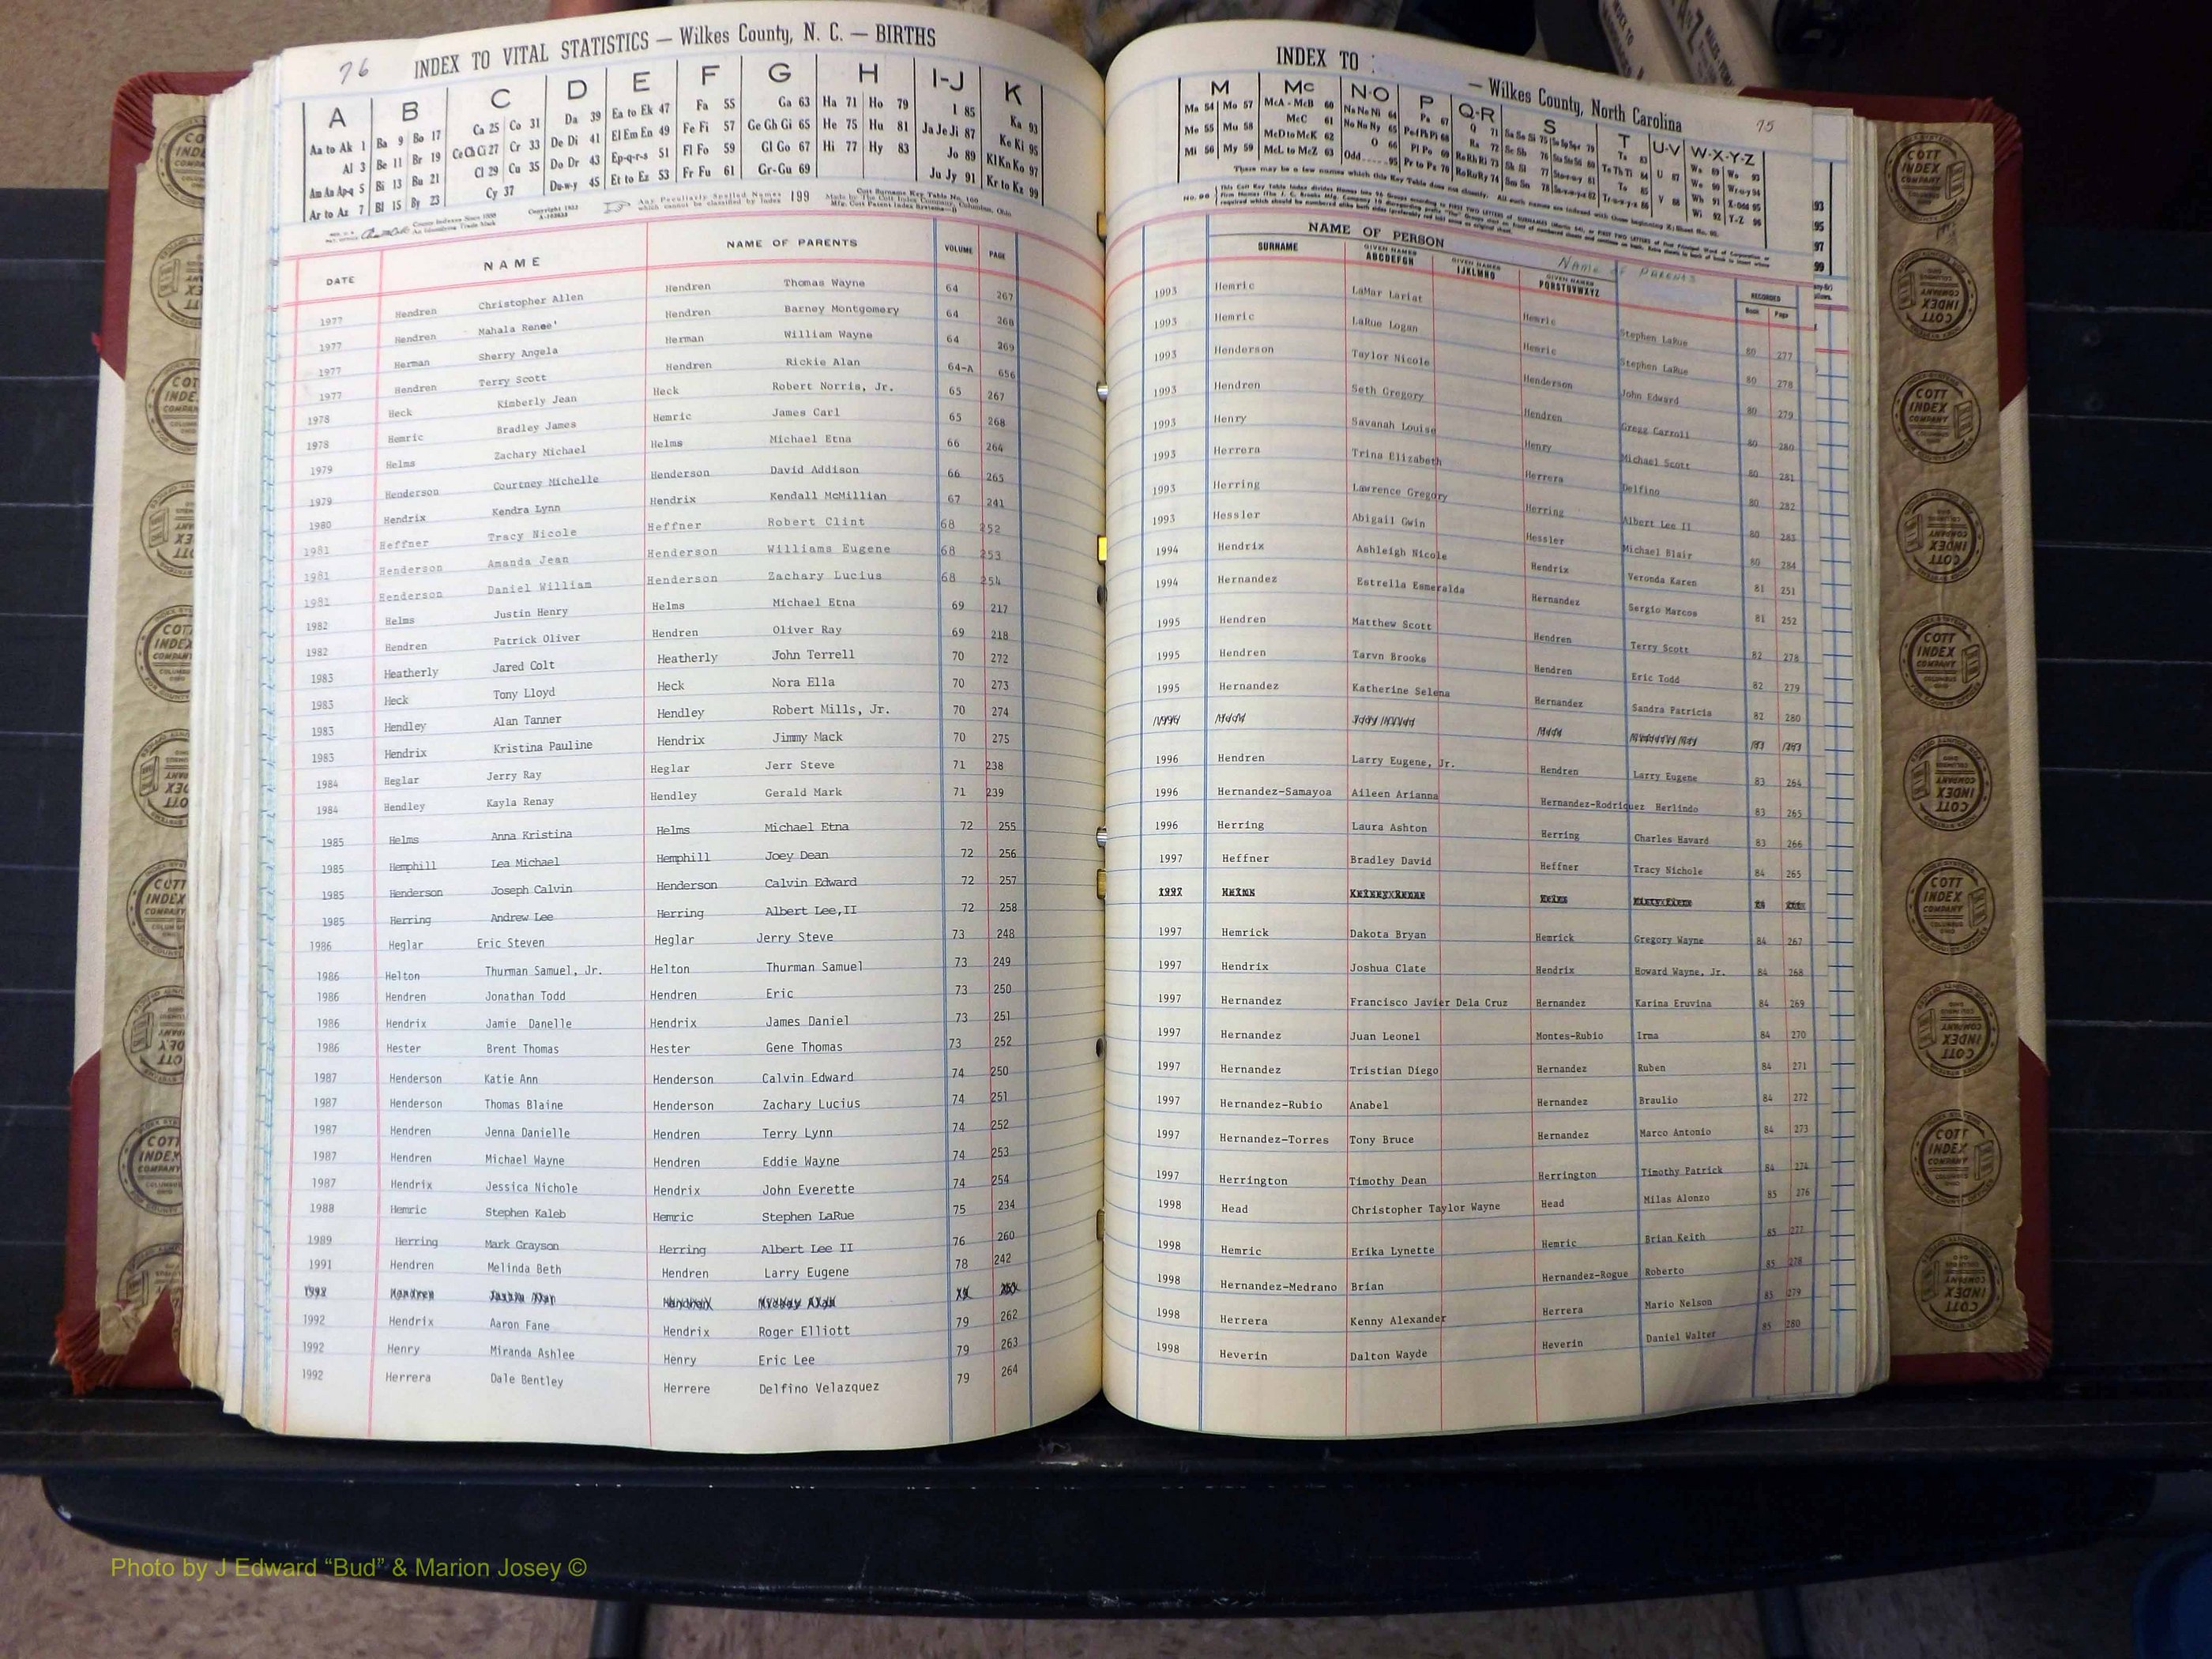 76 INDEX TO VITAL STATISTICS — Wilkes County, N. C. — BIRTHS
A B C D E F G H I-J K
Aa to Ak 1 Ba 9 Bo 17 Ca 25 Co 31 Da 39 Ea to Ek 47 Fa 55 Ga 63 Ha 71 Ho 79 I 85 Ka 93
Al 3 Be 11 Br 19 Ce Ch Ci 27 Cr 33 De Di 41 El Em En 49 Fe Fi 57 Ge Gh Gi 65 He 75 Hu 81 Ja Je Ji 87 Ke Ki 95
Am An Ap-q 5 Bi 13 Bu 21 Cl 29 Cu 35 Do Dr 43 Ep-q-r-s 51 Fl Fo 59 Gl Go 67 Hi 77 Hy 83 Jo 89 Kl Kn Ko 97
Ar to Az 7 Bl 15 By 23 Cy 37 Du-w-y 45 Et to Ez 53 Fr Fu 61 Gr-Gu 69 Ju Jy 91 Kr to Kz 99
Any Peculiarly Spelled Names which cannot be classified by Index 199
DATE NAME NAME OF PARENTS VOLUME PAGE
1977 Hendren Christopher Allen Hendren Thomas Wayne 64 267
1977 Hendren Mahala Renee' Hendren Barney Montgomery 64 268
1977 Herman Sherry Angela Herman William Wayne 64 269
1977 Hendren Terry Scott Hendren Rickie Alan 64-A 656
1978 Heck Kimberly Jean Heck Robert Norris, Jr. 65 267
1978 Hemric Bradley James Hemric James Carl 65 268
1979 Helms Zachary Michael Helms Michael Etna 66 264
1979 Henderson Courtney Michelle Henderson David Addison 66 265
1980 Hendrix Kendra Lynn Hendrix Kendall McMillian 67 241
1981 Heffner Tracy Nicole Heffner Robert Clint 68 252
1981 Henderson Amanda Jean Henderson Williams Eugene 68 253
1981 Henderson Daniel William Henderson Zachary Lucius 68 254
1982 Helms Justin Henry Helms Michael Etna 69 217
1982 Hendren Patrick Oliver Hendren Oliver Ray 69 218
1983 Heatherly Jared Colt Heatherly John Terrell 70 272
1983 Heck Tony Lloyd Heck Nora Ella 70 273
1983 Hendley Alan Tanner Hendley Robert Mills, Jr. 70 274
1983 Hendrix Kristina Pauline Hendrix Jimmy Mack 70 275
1984 Heglar Jerry Ray Heglar Jerr Steve 71 238
1984 Hendley Kayla Renay Hendley Gerald Mark 71 239
1985 Helms Anna Kristina Helms Michael Etna 72 255
1985 Hemphill Lea Michael Hemphill Joey Dean 72 256
1985 Henderson Joseph Calvin Henderson Calvin Edward 72 257
1985 Herring Andrew Lee Herring Albert Lee,II 72 258
1986 Heglar Eric Steven Heglar Jerry Steve 73 248
1986 Helton Thurman Samuel, Jr. Helton Thurman Samuel 73 249
1986 Hendren Jonathan Todd Hendren Eric 73 250
1986 Hendrix Jamie Danelle Hendrix James Daniel 73 251
1986 Hester Brent Thomas Hester Gene Thomas 73 252
1987 Henderson Katie Ann Henderson Calvin Edward 74 250
1987 Henderson Thomas Blaine Henderson Zachary Lucius 74 251
1987 Hendren Jenna Danielle Hendren Terry Lynn 74 252
1987 Hendren Michael Wayne Hendren Eddie Wayne 74 253
1987 Hendrix Jessica Nichole Hendrix John Everette 74 254
1988 Hemric Stephen Kaleb Hemric Stephen LaRue 75 234
1989 Herring Mark Grayson Herring Albert Lee II 76 260
1991 Hendren Melinda Beth Hendren Larry Eugene 78 242
1992 Hendrix Aaron Fane Hendrix Roger Elliott 79 262
1992 Henry Miranda Ashlee Henry Eric Lee 79 263
1992 Herrera Dale Bentley Herrere Delfino Velazquez 79 264
INDEX TO — Wilkes County, North Carolina 75
M Mc N-O P Q-R S T U-V W-X-Y-Z
There may be a few names which this Key Table does not classify.
NAME OF PERSON Name of Parents
SURNAME GIVEN NAMES ABCDEFGH GIVEN NAMES IJKLMNO GIVEN NAMES PQRSTUVWXYZ RECORDED Book Page
1993 Hemric LaMar Lariat Hemric Stephen LaRue 80 277
1993 Hemric LaRue Logan Hemric Stephen LaRue 80 278
1993 Henderson Taylor Nicole Henderson John Edward 80 279
1993 Hendren Seth Gregory Hendren Gregg Carroll 80 280
1993 Henry Savanah Louise Henry Michael Scott 80 281
1993 Herrera Trina Elizabeth Herrera Delfino 80 282
1993 Herring Lawrence Gregory Herring Albert Lee II 80 283
1993 Hessler Abigail Gwin Hessler Michael Blair 80 284
1994 Hendrix Ashleigh Nicole Hendrix Veronda Karen 81 251
1994 Hernandez Estrella Esmeralda Hernandez Sergio Marcos 81 252
1995 Hendren Matthew Scott Hendren Terry Scott 82 278
1995 Hendren Taryn Brooks Hendren Eric Todd 82 279
1995 Hernandez Katherine Selena Hernandez Sandra Patricia 82 280
1996 Hendren Larry Eugene, Jr. Hendren Larry Eugene 83 264
1996 Hernandez-Samayoa Aileen Arianna Hernandez-Rodriquez Herlindo 83 265
1996 Herring Laura Ashton Herring Charles Havard 83 266
1997 Heffner Bradley David Heffner Tracy Nichole 84 265
1997 Hemrick Dakota Bryan Hemrick Gregory Wayne 84 267
1997 Hendrix Joshua Clate Hendrix Howard Wayne, Jr. 84 268
1997 Hernandez Francisco Javier Dela Cruz Hernandez Karina Eruvina 84 269
1997 Hernandez Juan Leonel Montes-Rubio Irma 84 270
1997 Hernandez Tristian Diego Hernandez Ruben 84 271
1997 Hernandez-Rubio Anabel Hernandez Braulio 84 272
1997 Hernandez-Torres Tony Bruce Hernandez Marco Antonio 84 273
1997 Herrington Timothy Dean Herrington Timothy Patrick 84 274
1998 Head Christopher Taylor Wayne Head Milas Alonzo 85 276
1998 Hemric Erika Lynette Hemric Brian Keith 85 277
1998 Hernandez-Medrano Brian Hernandez-Rogue Roberto 85 278
1998 Herrera Kenny Alexander Herrera Mario Nelson 85 279
1998 Heverin Dalton Wayde Heverin Daniel Walter 85 280
COTT INDEX COMPANY
Photo by J Edward “Bud” & Marion Josey ©